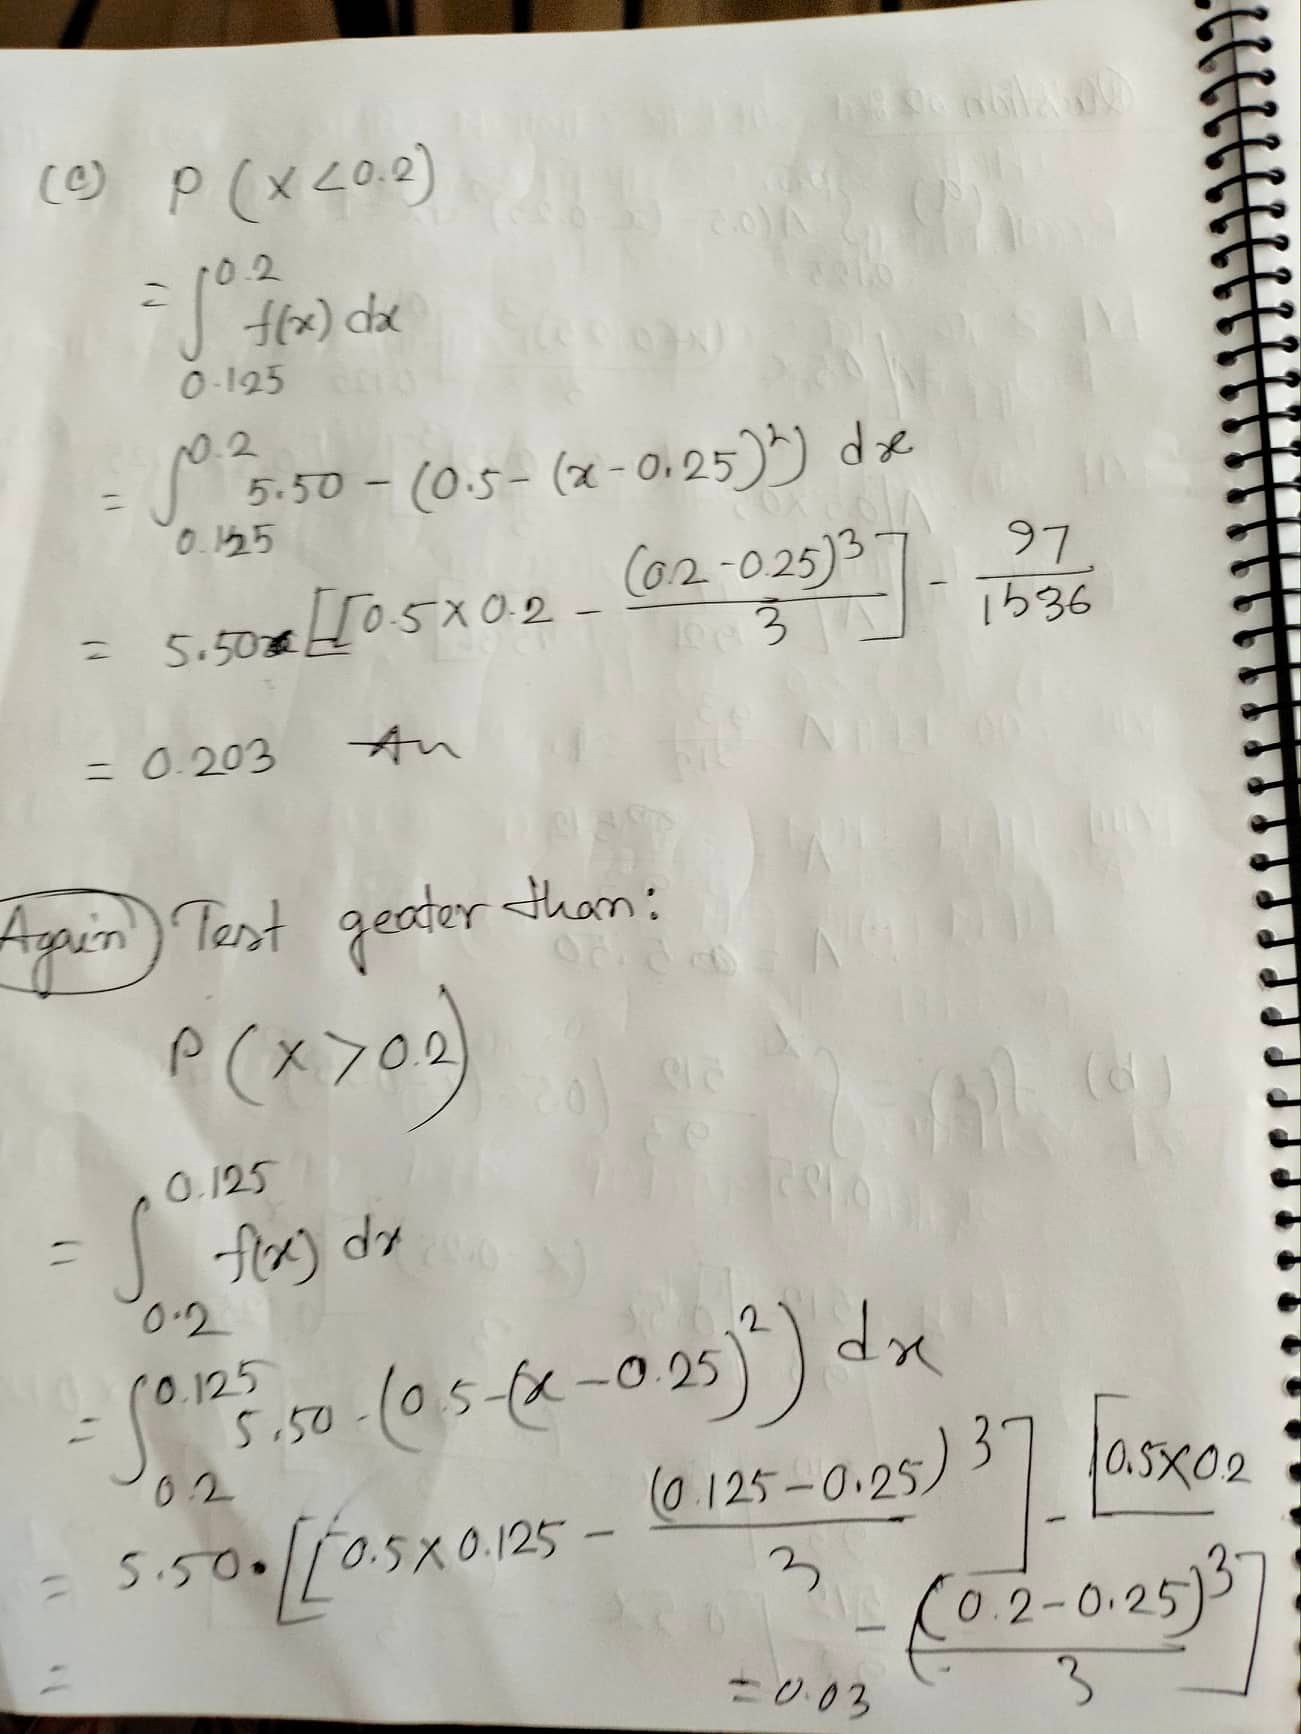 (c) P (x < 0.2)
= ∫_{0.125}^{0.2} f(x) dx
= ∫_{0.125}^{0.2} 5.50 - (0.5 - (x - 0.25)²) dx
= 5.50 [[0.5 × 0.2 - (0.2 - 0.25)³ / 3] - 97/1536
= 0.203 An
Again) Test geater than:
P (x > 0.2)
= ∫_{0.2}^{0.125} f(x) dx
= ∫_{0.2}^{0.125} 5.50 · (0.5 - (x - 0.25)²) dx
= 5.50 · [[0.5 × 0.125 - (0.125 - 0.25)³ / 3] - [0.5 × 0.2
- (0.2 - 0.25)³ / 3]
=
= 0.03